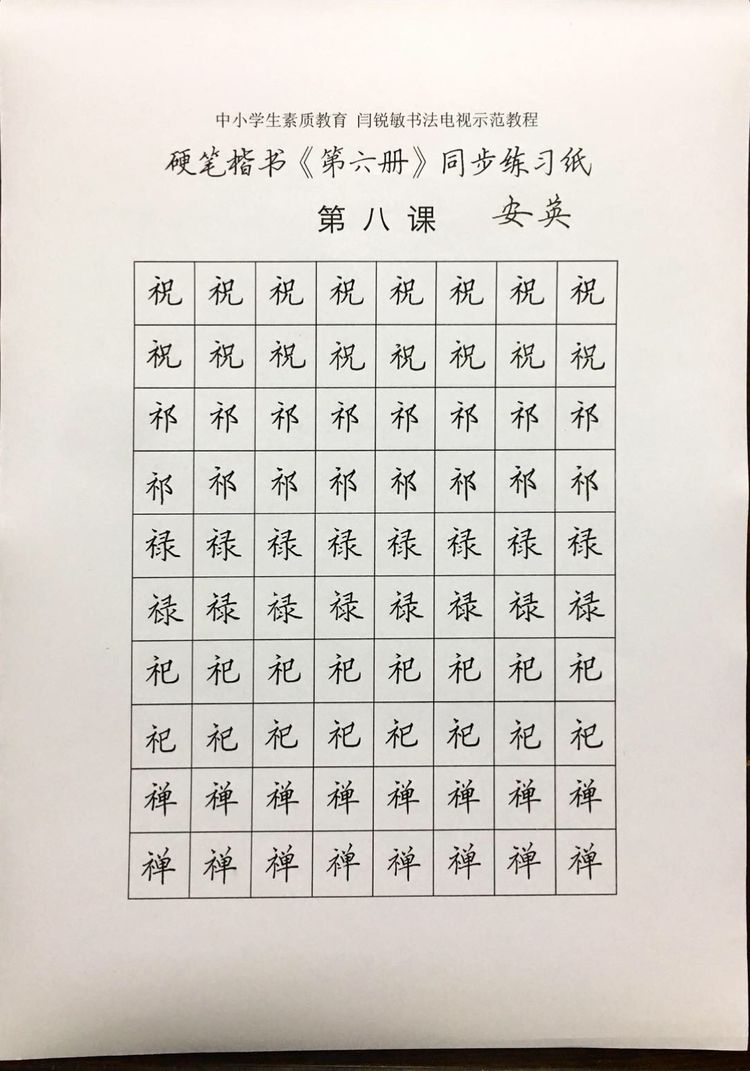 中小学生素质教育 闫锐敏书法电视示范教程
硬笔楷书《第六册》同步练习纸
第八课 安英
祝祝祝祝祝祝祝祝
祝祝祝祝祝祝祝祝
祁祁祁祁祁祁祁祁
祁祁祁祁祁祁祁祁
禄禄禄禄禄禄禄禄
禄禄禄禄禄禄禄禄
祀祀祀祀祀祀祀祀
祀祀祀祀祀祀祀祀
禅禅禅禅禅禅禅禅
禅禅禅禅禅禅禅禅